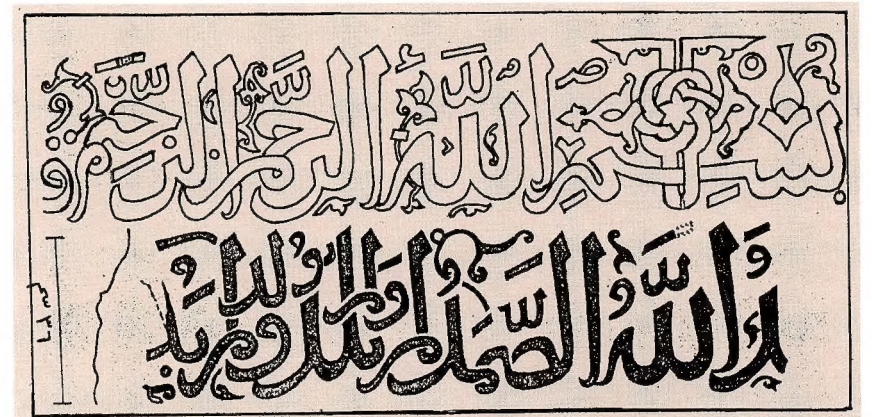 بسم الله الرحمن الرحيم
د الله الصمد لم يلد ولم يولد